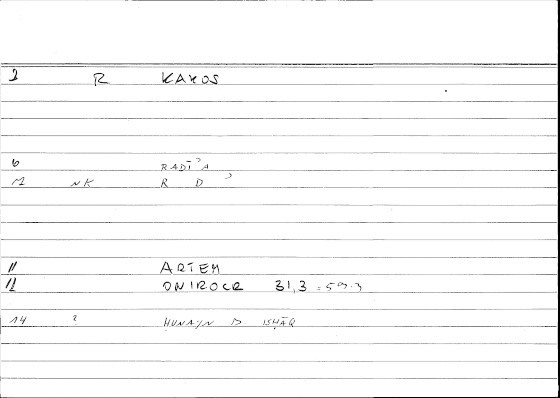 2 R KAKOS
6 RADĪʾA
12 NK R D ʾ
11 ARTEM
12 ONIROCR 31,3 = 59.3
14 ? ḤUNAYN B ISḤĀQ